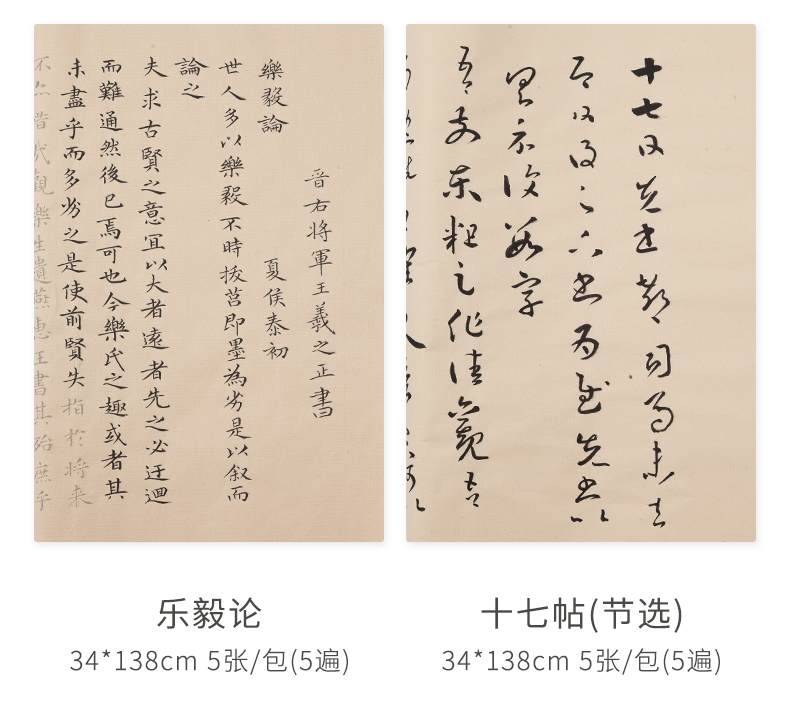 晋右将軍王羲之正書
樂毅論 夏侯泰初
世人多以樂毅不時拔莒即墨為劣是以叙而
論之
夫求古賢之意宜以大者遠者先之必迂迴
而難通然後已焉可也今樂氏之趣或者其
未盡乎而多劣之是使前賢失指於将来
不亦惜哉觀樂生遺燕惠王書其殆庶乎
十七日先書郗司馬未去
即日得足下書為慰先書以
具示復數字
吾前東粗足作佳觀吾
乐毅论
34*138cm 5张/包(5遍)
十七帖(节选)
34*138cm 5张/包(5遍)